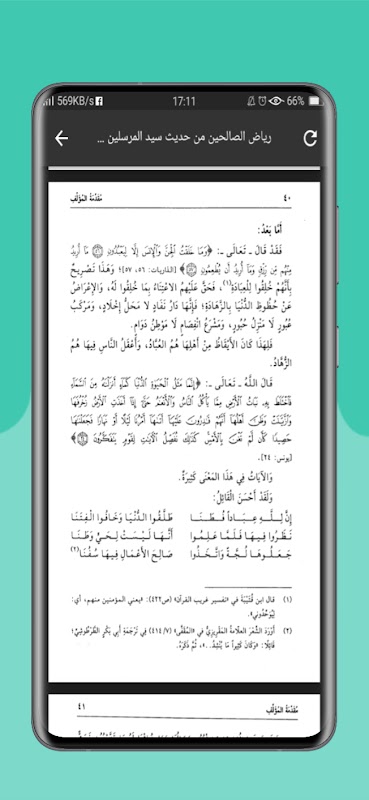 569KB/s 17:11 66%
رياض الصالحين من حديث سيد المرسلين ...
٤٠ مقدمة المؤلف
أَمَّا بَعْدُ:
فَقَدْ قَالَ - تَعَالَى -: ﴿وَمَا خَلَقْتُ الْجِنَّ وَالْإِنسَ إِلَّا لِيَعْبُدُونِ ﴿٥٦﴾ مَا أُرِيدُ
مِنْهُم مِّن رِّزْقٍ وَمَا أُرِيدُ أَن يُطْعِمُونِ ﴿٥٧﴾﴾ [الذاريات: ٥٦، ٥٧]؛ وَهَذَا تَصْرِيحٌ
بِأَنَّهُمْ خُلِقُوا لِلْعِبَادَةِ(١)، فَحَقَّ عَلَيْهِمُ الاعْتِنَاءُ بِمَا خُلِقُوا لَهُ، وَالإِعْرَاضُ
عَنْ حُظُوظِ الدُّنْيَا بِالزَّهَادَةِ؛ فَإِنَّهَا دَارُ نَفَادٍ لا مَحَلُّ إِخْلادٍ، وَمَرْكَبُ
عُبُورٍ لا مَنْزِلُ حُبُورٍ، وَمَشْرَعُ انْفِصَامٍ لا مَوْطِنُ دَوَامٍ.
فَلِهَذَا كَانَ الأَيْقَاظُ مِنْ أَهْلِهَا هُمُ العُبَّادُ، وَأَعْقَلُ النَّاسِ فِيهَا هُمُ
الزُّهَّادُ.
قَالَ اللَّهُ - تَعَالَى -: ﴿إِنَّمَا مَثَلُ الْحَيَاةِ الدُّنْيَا كَمَاءٍ أَنزَلْنَاهُ مِنَ السَّمَاءِ
فَاخْتَلَطَ بِهِ نَبَاتُ الْأَرْضِ مِمَّا يَأْكُلُ النَّاسُ وَالْأَنْعَامُ حَتَّى إِذَا أَخَذَتِ الْأَرْضُ زُخْرُفَهَا
وَازَّيَّنَتْ وَظَنَّ أَهْلُهَا أَنَّهُمْ قَادِرُونَ عَلَيْهَا أَتَاهَا أَمْرُنَا لَيْلًا أَوْ نَهَارًا فَجَعَلْنَاهَا
حَصِيدًا كَأَن لَّمْ تَغْنَ بِالْأَمْسِ كَذَلِكَ نُفَصِّلُ الْآيَاتِ لِقَوْمٍ يَتَفَكَّرُونَ ﴿٢٤﴾﴾
[يونس: ٢٤].
وَالآيَاتُ فِي هَذَا المَعْنَى كَثِيرَةٌ.
وَلَقَدْ أَحْسَنَ القَائِلُ:
إِنَّ لِلَّهِ عِبَاداً فُطَنَا طَلَّقُوا الدُّنْيَا وَخَافُوا الفِتَنَا
نَظَرُوا فِيهَا فَلَمَّا عَلِمُوا أَنَّهَا لَيْسَتْ لِحَيٍّ وَطَنَا
جَعَلُوهَا لُجَّةً وَاتَّخَذُوا صَالِحَ الأَعْمَالِ فِيهَا سُفُنَا(٢)
(١) قال ابن قُتَيْبَةَ في «تفسير غريب القرآن» (ص٤٢٢): «يعني المؤمنين منهم، أي:
لِيُوَحِّدُوني».
(٢) أوْرَدَ الشِّعْرَ العلَّامةُ المَقْريزيُّ في «المُقَفَّى» (٧/ ٤١٤) في تَرْجَمَةِ أبي بكرٍ الطُّرْطُوشِيِّ؛
قائلًا: «وَكَانَ كَثيراً مَا يُنْشِدُ...»، ثُمَّ ذَكَرَهُ.
٤١ مقدمة المؤلف